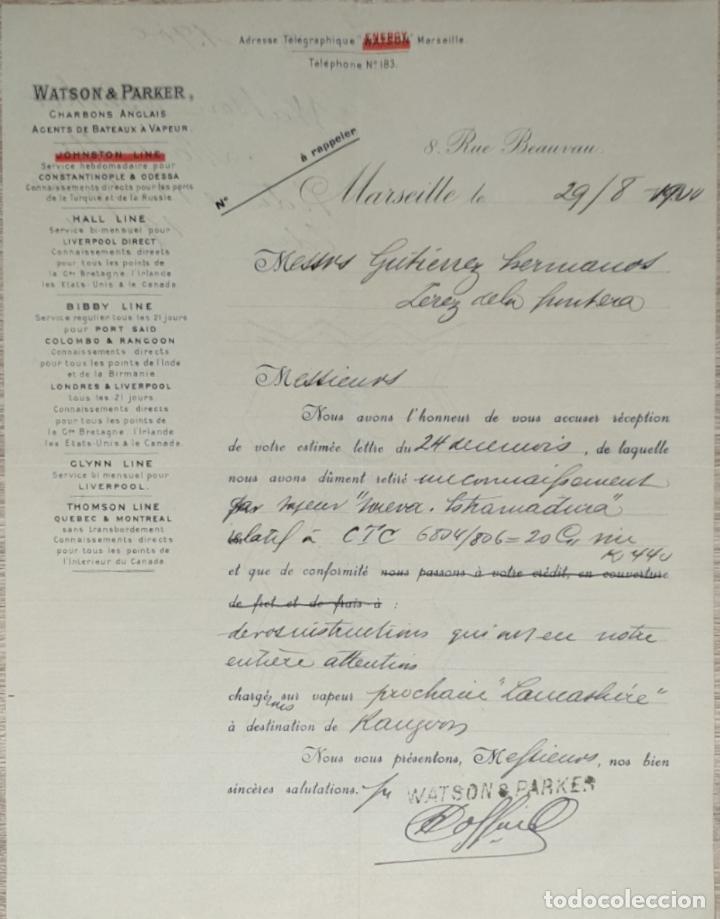 Adresse Télégraphique "ENERGY" Marseille.
Téléphone Nº 183.
WATSON & PARKER,
CHARBONS ANGLAIS
AGENTS DE BATEAUX À VAPEUR.
JOHNSTON LINE
Service hebdomadaire pour
CONSTANTINOPLE & ODESSA
Connaissements directs pour les ports
de la Turquie et de la Russie.
HALL LINE
Service bi-mensuel pour
LIVERPOOL DIRECT
Connaissements directs
pour tous les points de
la Gde Bretagne, l'Irlande
les Etats-Unis & le Canada.
BIBBY LINE
Service regulier tous les 21 jours
pour PORT SAID
COLOMBO & RANGOON
Connaissements directs
pour tous les points de l'Inde
et de la Birmanie.
LONDRES & LIVERPOOL
tous les 21 jours.
Connaissements directs
pour tous les points de
la Gde Bretagne, l'Irlande
les Etats-Unis & le Canada.
GLYNN LINE
Service bi mensuel pour
LIVERPOOL.
THOMSON LINE
QUEBEC & MONTREAL
sans transbordement
Connaissements directs
pour tous les points de
l'Interieur du Canada.
Nº à rappeler
8, Rue Beauvau.
Marseille le 29/8
Messrs Gutierrez hermanos
Jerez de la frontera
Messieurs
Nous avons l'honneur de vous accuser réception
de votre estimée lettre du 24 de ce mois, de laquelle
nous avons dûment retiré un connaissement
par vapeur "Estramadura"
relatif à CTC 6804/806 = 20 C
K 440
et que de conformité nous passons à votre crédit, en couverture
de fret et de frais à :
de vos instructions qui ont eu notre
entière attention
chargés sur vapeur prochain "Lancashire"
à destination de Rangoon
Nous vous présentons, Messieurs, nos bien
sincères salutations. WATSON & PARKER
todocoleccion